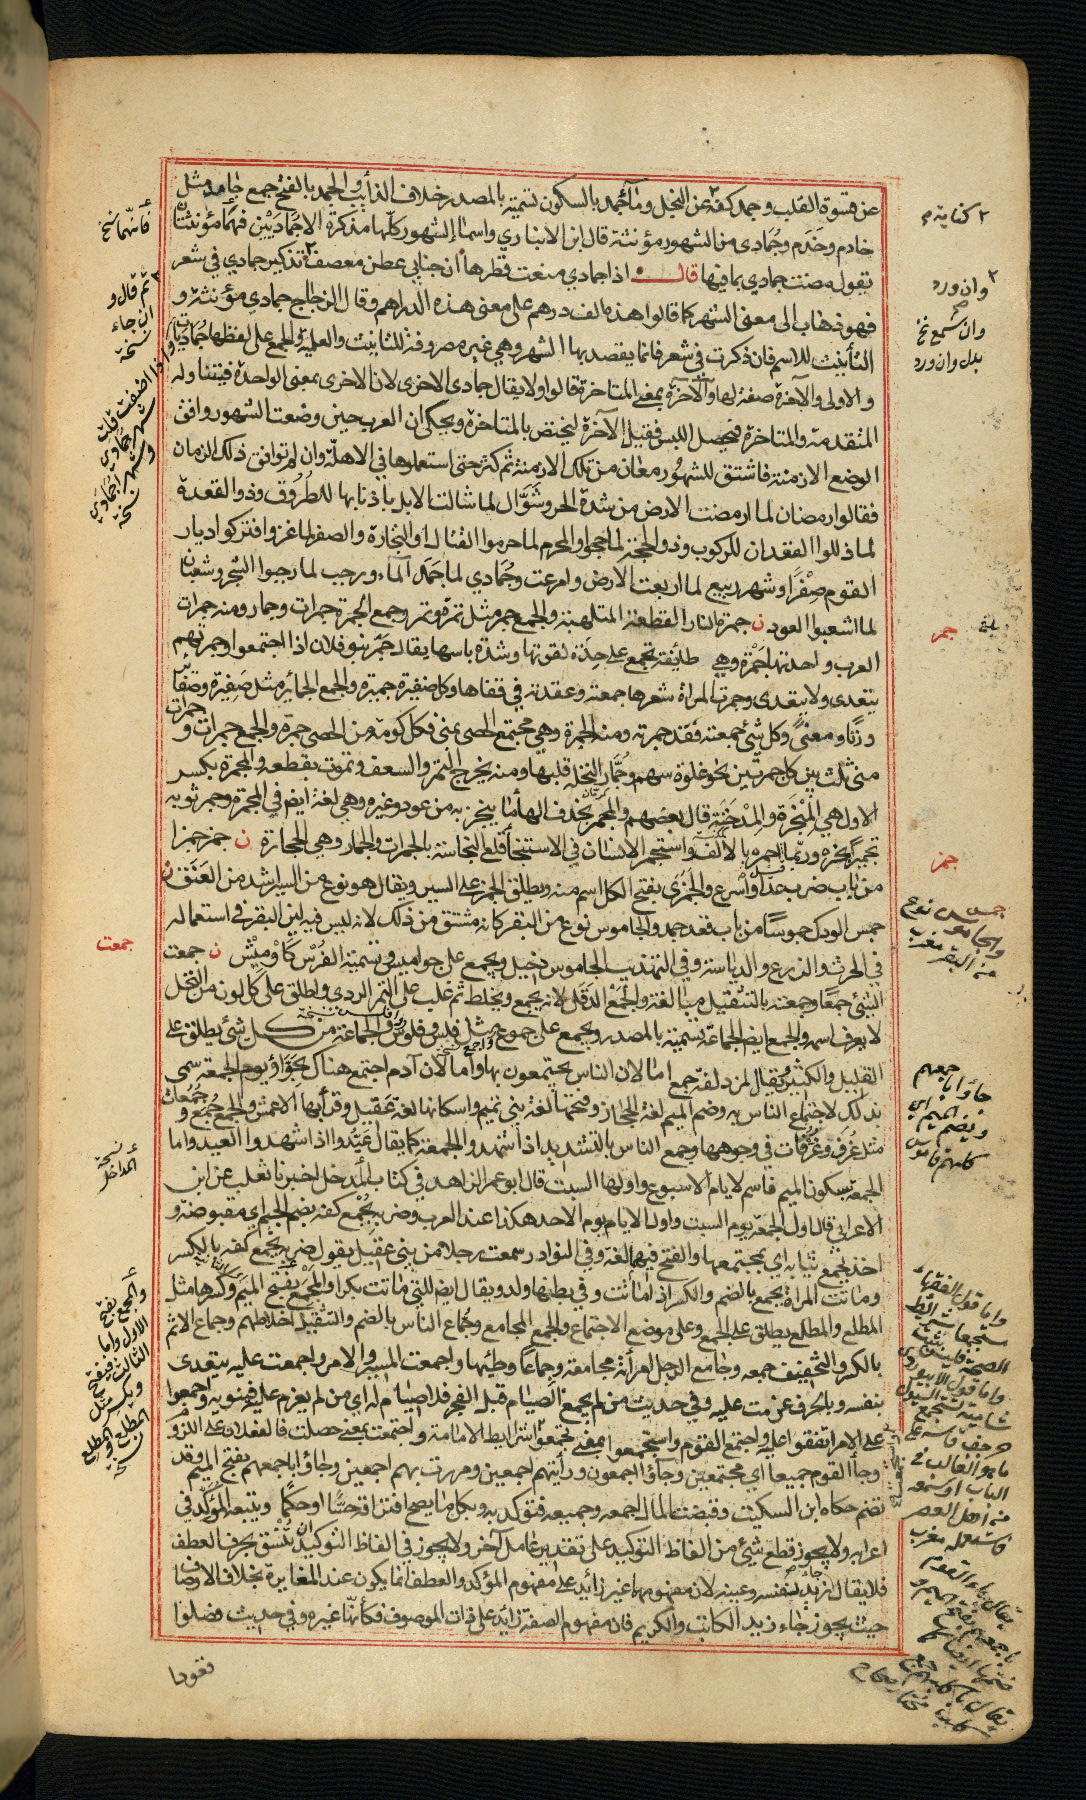 عن قسوة القلب وجمد كفه عن البخل وماء جمد بالسكون تسمية بالمصدر خلاف الذائب والجمد بالفتح جمع جامد مثل
خادم وخدم وجمادى من الشهور مؤنثة قال ابن الانباري واسماء الشهور كلها مذكرة الا جماديين فهما مؤنثتان
يقول مضت جمادي بما فيها قال اذا جمادي منعت قطرها ان جنابي عطن معصف تذكير جمادي في شعر
فهو ذهاب الى معنى الشهر كما قالوا هذه الف درهم على معنى هذه الدراهم وقال الزجاج جمادى مؤنثة و
التأنيث للاسم فان ذكرت في شعر فانما يقصد بها الشهر وهي غير مصروفة للتانيث والعلمية والجمع على لفظها جماديات
والاولى والآخرة صفة لها والآخرة بمعنى المتاخرة قالوا ولا يقال جمادى الاخرى لان الاخرى بمعنى الواحدة فيتناوله
المتقدمة والمتاخرة فيحصل اللبس فقيل الآخرة ليختص بالمتاخرة ويحكى ان العرب حين وضعت الشهور وافق
الوضع الازمنة فاشتق للشهور معان من تلك الازمنة ثم كثر حتى استعملوها في الاهلة وان لم توافق ذلك الزمان
فقالوا رمضان لما ارمضت الارض من شدة الحر وشوال لما شالت الابل باذنابها للطروق وذو القعدة
لما ذللوا القعدان للركوب وذو الحجة لما حجوا والمحرم لما حرموا القتال او التجارة والصفر لما غزوا فتركوا ديار
القوم صفرا وشهر ربيع لما اربعت الارض وامرعت وجمادي لما جمد الماء ورجب لما رجبوا الشجر وشعبان
لما اشعبوا العود ن جمرة النار القطعة الملتهبة والجمع جمر مثل تمرة وتمر وجمع الجمرة جمرات وجمار ومنه جمرات
العرب واحدتها جمرة وهي طائفة تجمع على حدة لقوتها وشدة باسها يقال جمر بنو فلان اذا اجتمعوا وجمرتهم
يتعدى ولا يتعدى وجمرت المراة شعرها جمعته وعقدته في قفاها وكل ضفيرة جميرة والجمع الجمائر مثل ضفيرة وضفائر
وزنا ومعنى وكل شئ جمعته فقد جمرته ومنه الجمرة وهي مجتمع الحصى بمنى فكل كومة من الحصى جمرة والجمع جمرات و جمرات
منى ثلث بين كل جمرتين نحو غلوة سهم وجمار النخلة قلبها ومنه يخرج الثمر والسعف وتموت بقطعه والمجمرة بكسر
الاول هي المبخرة والمدخنة قال بعضهم والمجمر بحذف الهاء ما يبخر به من عود وغيره وهي لغة ايضا في المجمرة وجمر ثوبه
تجميرا بخره وربما اجمره بالالف واستجمر الانسان في الاستنجاء قلع النجاسة بالجمرات والجمار وهي الحجارة ن جمز جمزا
من باب ضرب عدا واسرع والجمزى بفتح الكل اسم منه ويطلق الجمز على السير ويقال هو نوع من السير اشد من العنق ن
جمس الودك جموسا من باب قعد جمد والجاموس نوع من البقر كانه مشتق من ذلك لانه ليس فيه لين البقر في استعماله
في الحرث والزرع والدياسة وفي التهذيب الجاموس دخيل ويجمع على جواميس تسمية الفرس كاوميش ن جمعت
الشئ جمعا وجمعته بالتثقيل مبالغة والجمع الدقل لانه يجمع ويخلط ثم غلب على التمر الردي واطلق على كل لون من النخل
لا يعرف اسمه والجمع ايضا الجماعة تسمية بالمصدر ويجمع على جموع مثل فلس وفلوس والجماعة من كل شئ يطلق على
القليل والكثير ويقال لمزدلفة جمع اما لان الناس يجتمعون بها واما لان آدم اجتمع هناك بحواء ويوم الجمعة سمى
بذلك لاجتماع الناس به وضم الميم لغة الحجاز وفتحها لغة بني تميم واسكانها لغة عقيل وقرأ بها الاعمش والجمع جمع و جمعات
مثل غرف وغرفات في وجوهها وجمع الناس بالتشديد اذا شهدوا الجمعة كما يقال عيدوا اذا شهدوا العيد واما
الجمعة بسكون الميم فاسم لايام الاسبوع واولها السبت قال ابو عمر الزاهد في كتاب المدخل اخبرنا ثعلب عن ابن
الاعرابي قال اول الجمعة يوم السبت واول الايام يوم الاحد هكذا عند العرب وضربه بجمع كفه بضم الجيم اي مقبوضة و
اخذ بجمع ثيابه اي بمجتمعها والفتح فيهما لغة وفي النوادر سمعت رجلا من بني عقيل يقول ضربه بجمع كفه بالكسر
وماتت المراة بجمع بالضم والكسر اذا ماتت وفي بطنها ولد ويقال ايضا للتي ماتت بكرا والمجمع بفتح الميم وكسرها مثل
المطلع والمطلع يطلق على الجمع وعلى موضع الاجتماع والجمع المجامع وجماع الناس بالضم والتثقيل اخلاطهم وجماع الاثم
بالكسر والتخفيف جمعه وجامع الرجل امرأته مجامعة وجماعا وطئها واجمعت المسير والامر واجمعت عليه يتعدى
بنفسه وبالحرف عزمت عليه وفي حديث من لم يجمع الصيام قبل الفجر فلا صيام له اي من لم يعزم عليه فينويه واجمعوا
على الامر اتفقوا عليه واجتمع القوم واستجمعوا بمعنى تجمعوا شرايط الامامة واجتمعت بمعنى حصلت فالفعلان على اللزوم
وجاء القوم جميعا اي مجتمعين وجاؤا اجمعون ورأيتهم اجمعين ومررت بهم اجمعين وجاؤا باجمعهم بفتح الميم وقد
تضم حكاه ابن السكيت وقبضت المال اجمعه وجميعه فتؤكد به وكل ما يصح افتراقه حسا او حكما ويتبعه المؤكد في
اعرابه ولا يجوز قطع شئ من الفاظ التوكيد على تقدير عامل آخر ولا يجوز في الفاظ التوكيد ان تنسق بحرف العطف
فلا يقال جاء زيد نفسه وعينه لان مفهومها غير زائد على مفهوم المؤكد والعطف انما يكون عند المغايرة بخلاف الاوصاف
حيث يجوز جاء زيد الكاتب والكريم فان مفهوم الصفة زائد على ذات الموصوف فكانها غيره وفي حديث فصلوا
قعودا
كناية
وان ورد
وان سمع نخ
بدل وان ورد
جمر
جمز
والجاموس نوع
من البقر معرب
جمعت
جاؤا باجمعهم
ويضم الميم اي
كلهم قاموس
نسخة المداخل
فانهما نسخ
ثم قال و
ان جاء
نسخة
واذا اضفت قلت
شهر جمادي
وشهرا جمادي
نسخة
والمجمع بفتح
الاول واما
الثالث فيفتح
ويكسر مثل
المطلع والمطلع
نسخة
واما قول الفقهاء